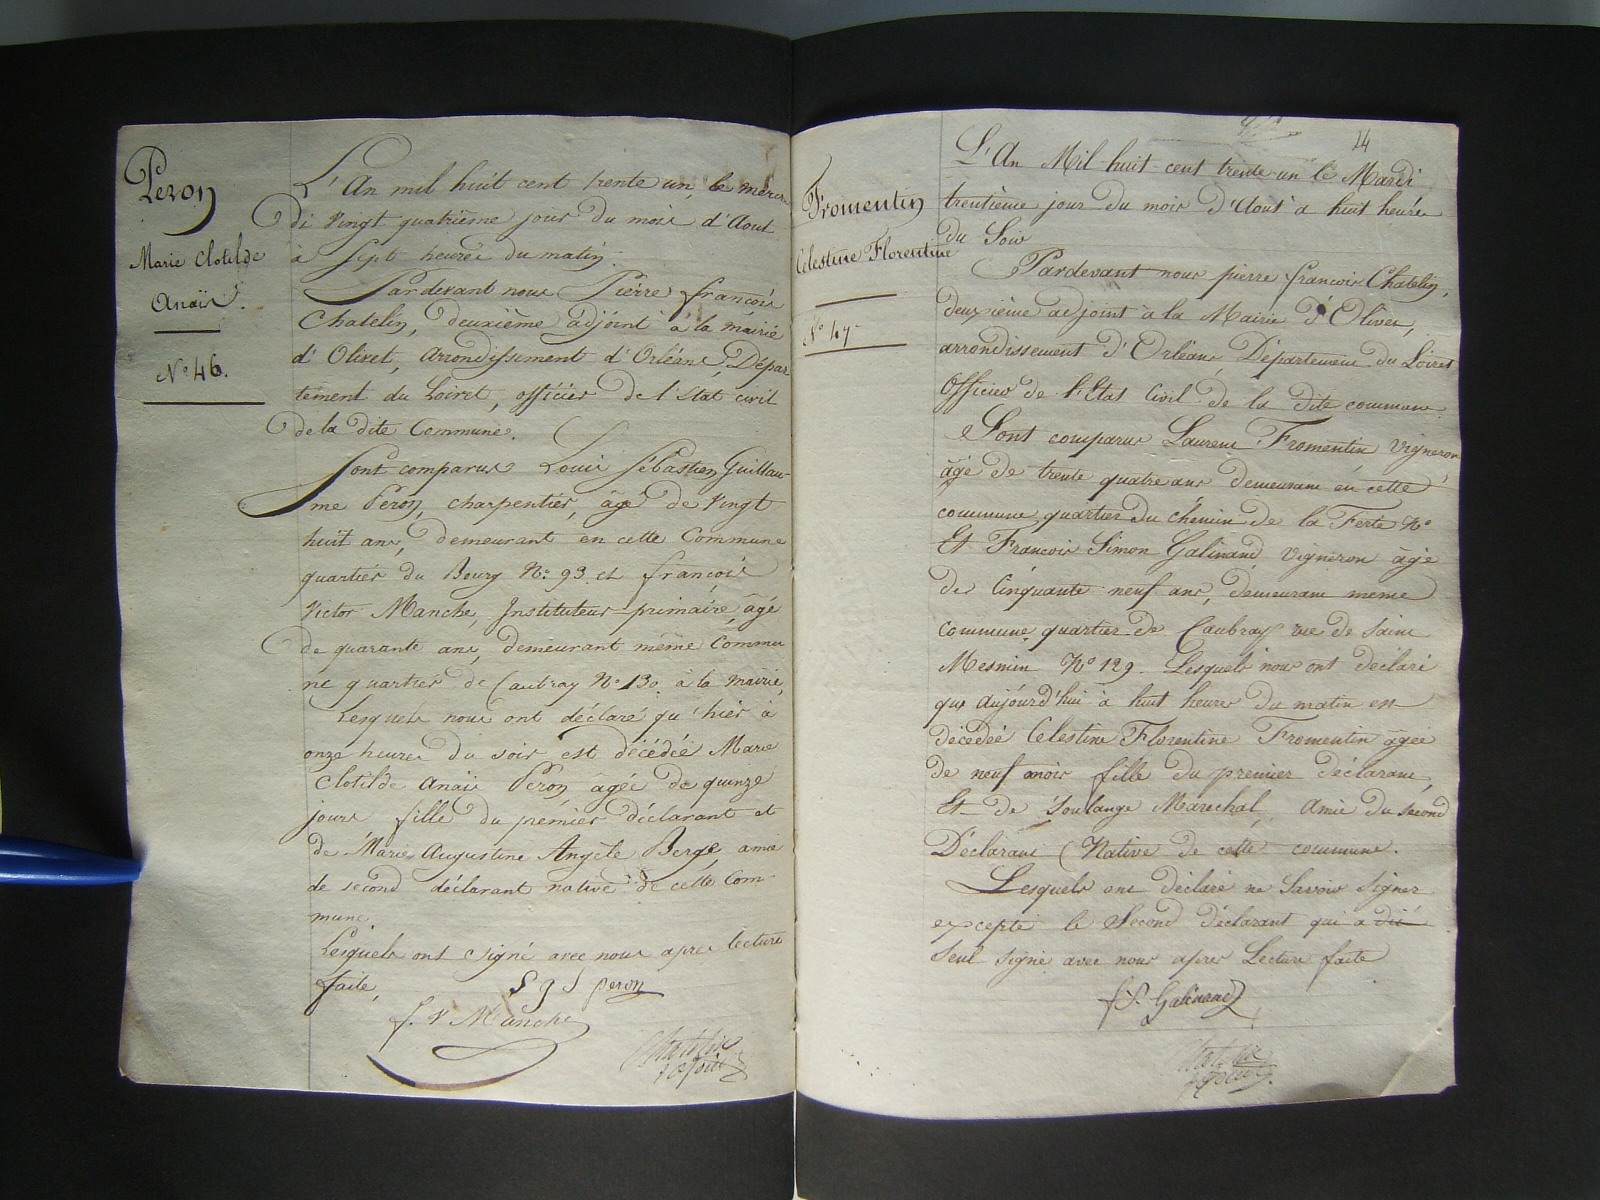 Peron
Marie Clotilde
Anaïs.
N° 46.
L'An mil huit cent trente un, le mercre
di vingt quatrième jour du mois d'Aout
à Sept heures du matin.
Pardevant nous Pierre françois
Chatelin, deuxième adjoint à la mairie
d'Olivet, arrondissement d'Orléans, Dépar
tement du Loiret, officier de l'Etat civil
de la dite Commune.
Sont comparus Louis Sébastien Guillau-
me Péron, charpentier, âgé de vingt
huit ans, demeurant en cette Commune
quartier du Bourg N° 93 et françois
Victor Manche, Instituteur primaire, âgé
de quarante ans, demeurant même Commu
ne quartier de Caubray N° 130 à la mairie,
Lesquels nous ont déclaré qu'hier à
onze heures du soir est décédée Marie
Clotilde Anais Péron, âgée de quinze
jours fille du premier déclarant et
de Marie Augustine Angèle Berge, amie
de second déclarant native de cette Com-
mune
Lesquels ont signé avec nous apres lecture
faite,
S g S peron
f. V Manche
Chatelin
adjoint
14
Fromentin
Celestine Florentine
N° 47
L'An Mil-huit-cent trente un le Mardi
trentième jour du mois d'Aout à huit heures
du Soir
Pardevant nous pierre françois Chatelin,
deuxième adjoint à la Mairie d'Olivet,
arrondissement d'Orléans, Département du Loiret
Officier de l'Etat Civil de la dite commune.
Sont comparus Laurent Fromentin, vigneron
âgé de trente quatre ans demeurant en cette
commune, quartier du chemin de la Ferté N°
Et François Simon Galinand, vigneron âgé
de Cinquante neuf ans, demeurant même
commune, quartier de Caubray rue de Saint
Mesmin N° 129. Lesquels nous ont déclaré
que aujourd'hui à huit heures du matin est
décédée Celestine Florentine Fromentin âgée
de neuf mois fille du premier déclarant,
Et de Soulange Marechal, Amie du second
Déclarant Native de cette commune.
Lesquels ont déclaré ne Savoir Signer
excepté le Second déclarant qui a dit
Seul signé avec nous apres Lecture faite
f. S. Galinand
Chatelin
adjoint